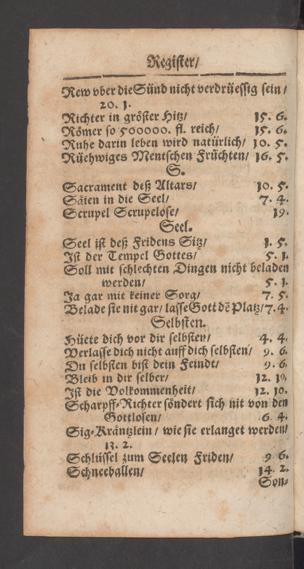 Register/
Rew vber die Sünd nicht verdrüessig sein/
20. 1.
Richter in gröster Hitz/ 15. 6.
Römer so 500000. fl. reich/ 15. 6.
Ruhe darin leben wird natürlich/ 10. 5.
Rüehwiges Mentschen Früchten/ 16. 5.
S.
Sacrament deß Altars/ 10. 5.
Säien in die Seel/ 7. 4.
Scrupel Scrupelose/ 19.
Seel.
Seel ist deß Fridens Sitz/ 1. 5.
Ist der Tempel Gottes/ 5. 1.
Soll mit schlechten Dingen nicht beladen
werden/ 5. 1.
Ja gar mit keiner Sorg/ 7. 5.
Belade sie nit gar/ lasse Gott dē Platz/ 7. 4.
Selbsten.
Hüete dich vor dir selbsten/ 4. 4.
Verlasse dich nicht auff dich selbsten/ 9. 6.
Du selbsten bist dein Feindt/ 9. 6.
Bleib in dir selber/ 12. 10.
Ist die Volkommenheit/ 12. 10.
Scharpff-Richter söndert sich nit von den
Gottlosen/ 6. 4.
Sig-Kräntzlein/ wie sie erlanget werden/
13. 2.
Schlüssel zum Seelen Friden/ 9. 6.
Schneeballen/ 14. 2.
Son-